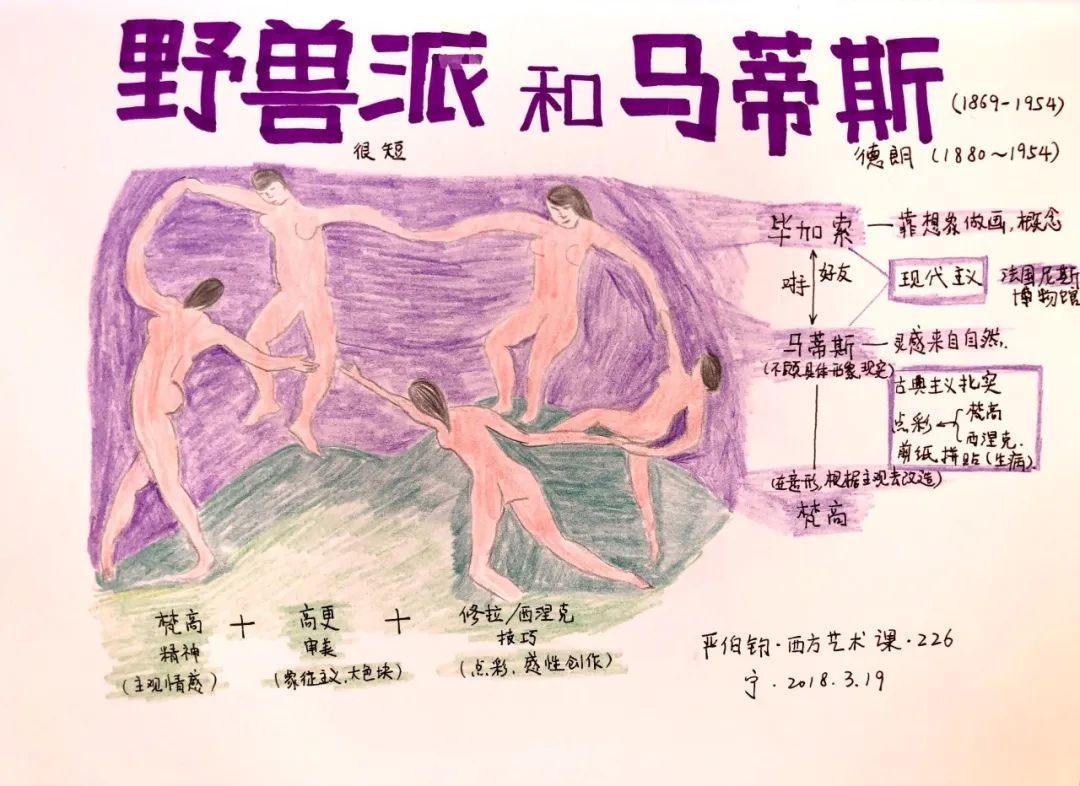 野兽派 和 马蒂斯 (1869-1954)
很短
德朗 (1880~1954)
毕加索 — 靠想象做画,概念
对手 好友
现代主义
法国尼斯
博物馆
马蒂斯 — 灵感来自自然.
(不顾具体形象现实)
古典主义扎实
点彩 梵高
西涅克.
剪纸,拼贴(生病)
(在意形,根据主观去改造)
梵高
梵高 + 高更 + 修拉/西涅克
精神 审美 技巧
(主观情感) (象征主义,大色块) (点彩,感性创作)
严伯钧·西方艺术课·226
宁.2018.3.19